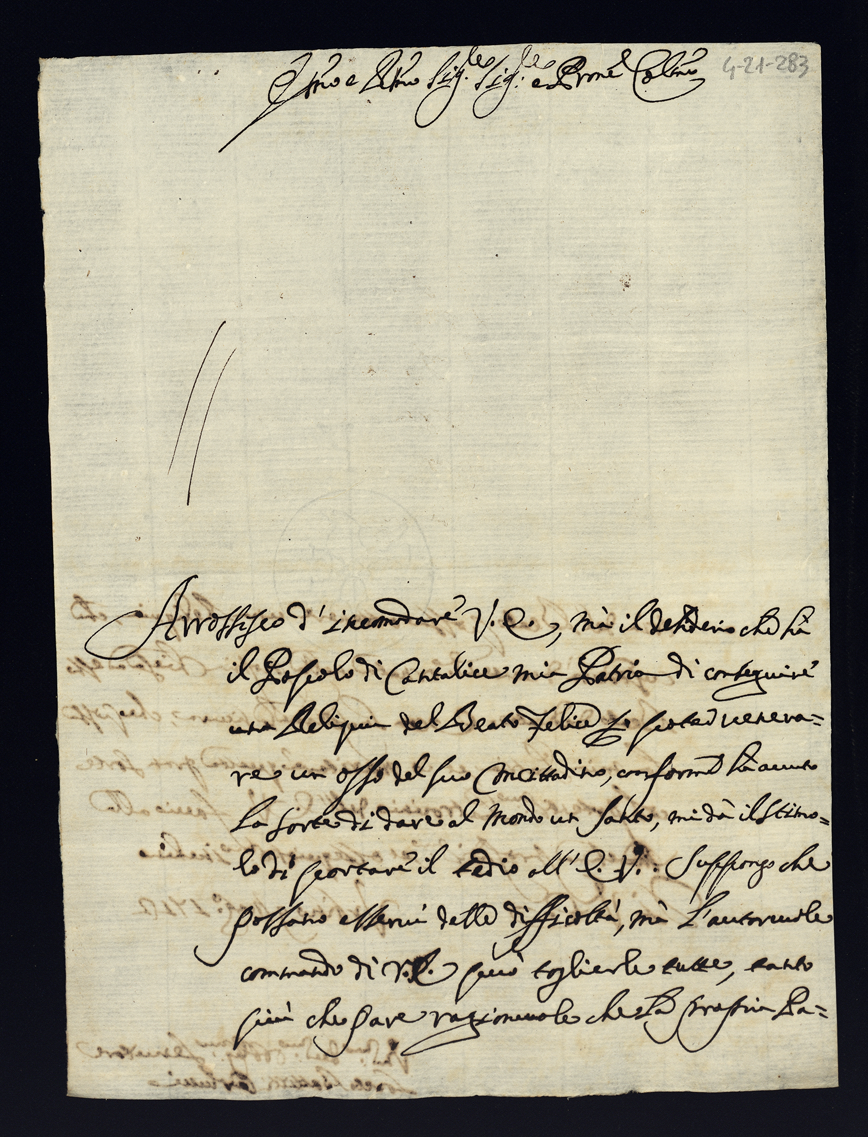 Em̃o e R̃mo Sig.re Sig.re e Prone Col̃mo
4-21-283
Arrossisco d'incomodare V. E., mà il desiderio che hà
il Popolo di Cantalice mia Patria di conseguire
una Reliquia del Beato Felice p poter venera=
re un osso del suo Concittadino, conforme hà avuto
la sorte di dare al Mondo un Santo, mi dà il stimo=
lo di portare il tedio all'E. V. Suppongo che
possano esservi delle difficoltà, mà l'autorevole
commando di V. E. può toglierle tutte, tanto
più che pare ragionevole che la propria Pa=